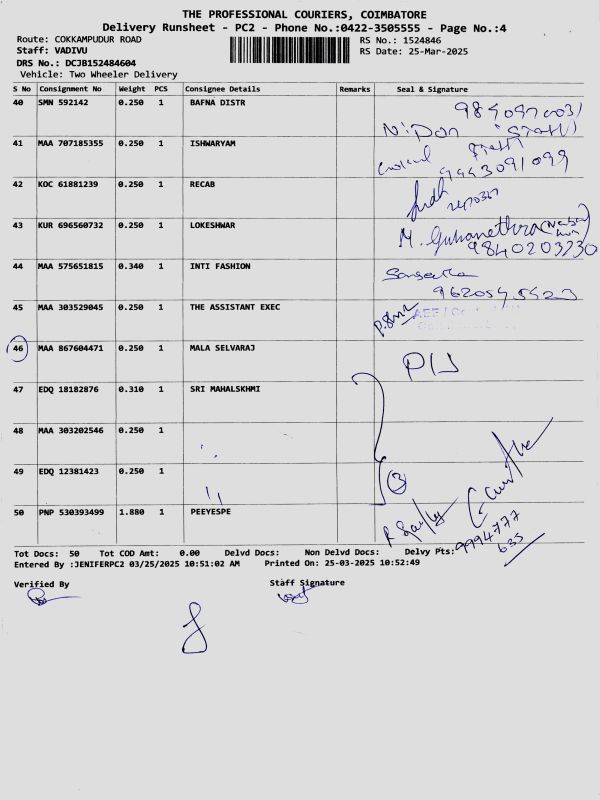 THE PROFESSIONAL COURIERS, COIMBATORE
Delivery Runsheet - PC2 - Phone No.:0422-3505555 - Page No.:4
Route: COKKAMPUDUR ROAD RS No.: 1524846
Staff: VADIVU RS Date: 25-Mar-2025
DRS No.: DCJB152484604
Vehicle: Two Wheeler Delivery
S No Consignment No Weight PCS Consignee Details Remarks Seal & Signature
40 SMN 592142 0.250 1 BAFNA DISTR
41 MAA 707185355 0.250 1 ISHWARYAM
9943091099
42 KOC 61881239 0.250 1 RECAB
43 KUR 696560732 0.250 1 LOKESHWAR
M. Guhanethra
9840203230
44 MAA 575651815 0.340 1 INTI FASHION
45 MAA 303529045 0.250 1 THE ASSISTANT EXEC
46 MAA 867604471 0.250 1 MALA SELVARAJ
47 EDQ 18182876 0.310 1 SRI MAHALSKHMI
48 MAA 303202546 0.250 1
49 EDQ 12381423 0.250 1
3
50 PNP 530393499 1.880 1 PEEYESPE
9994777
635
Tot Docs: 50 Tot COD Amt: 0.00 Delvd Docs: Non Delvd Docs: Delvy Pts:
Entered By :JENIFERPC2 03/25/2025 10:51:02 AM Printed On: 25-03-2025 10:52:49
Verified By Staff Signature